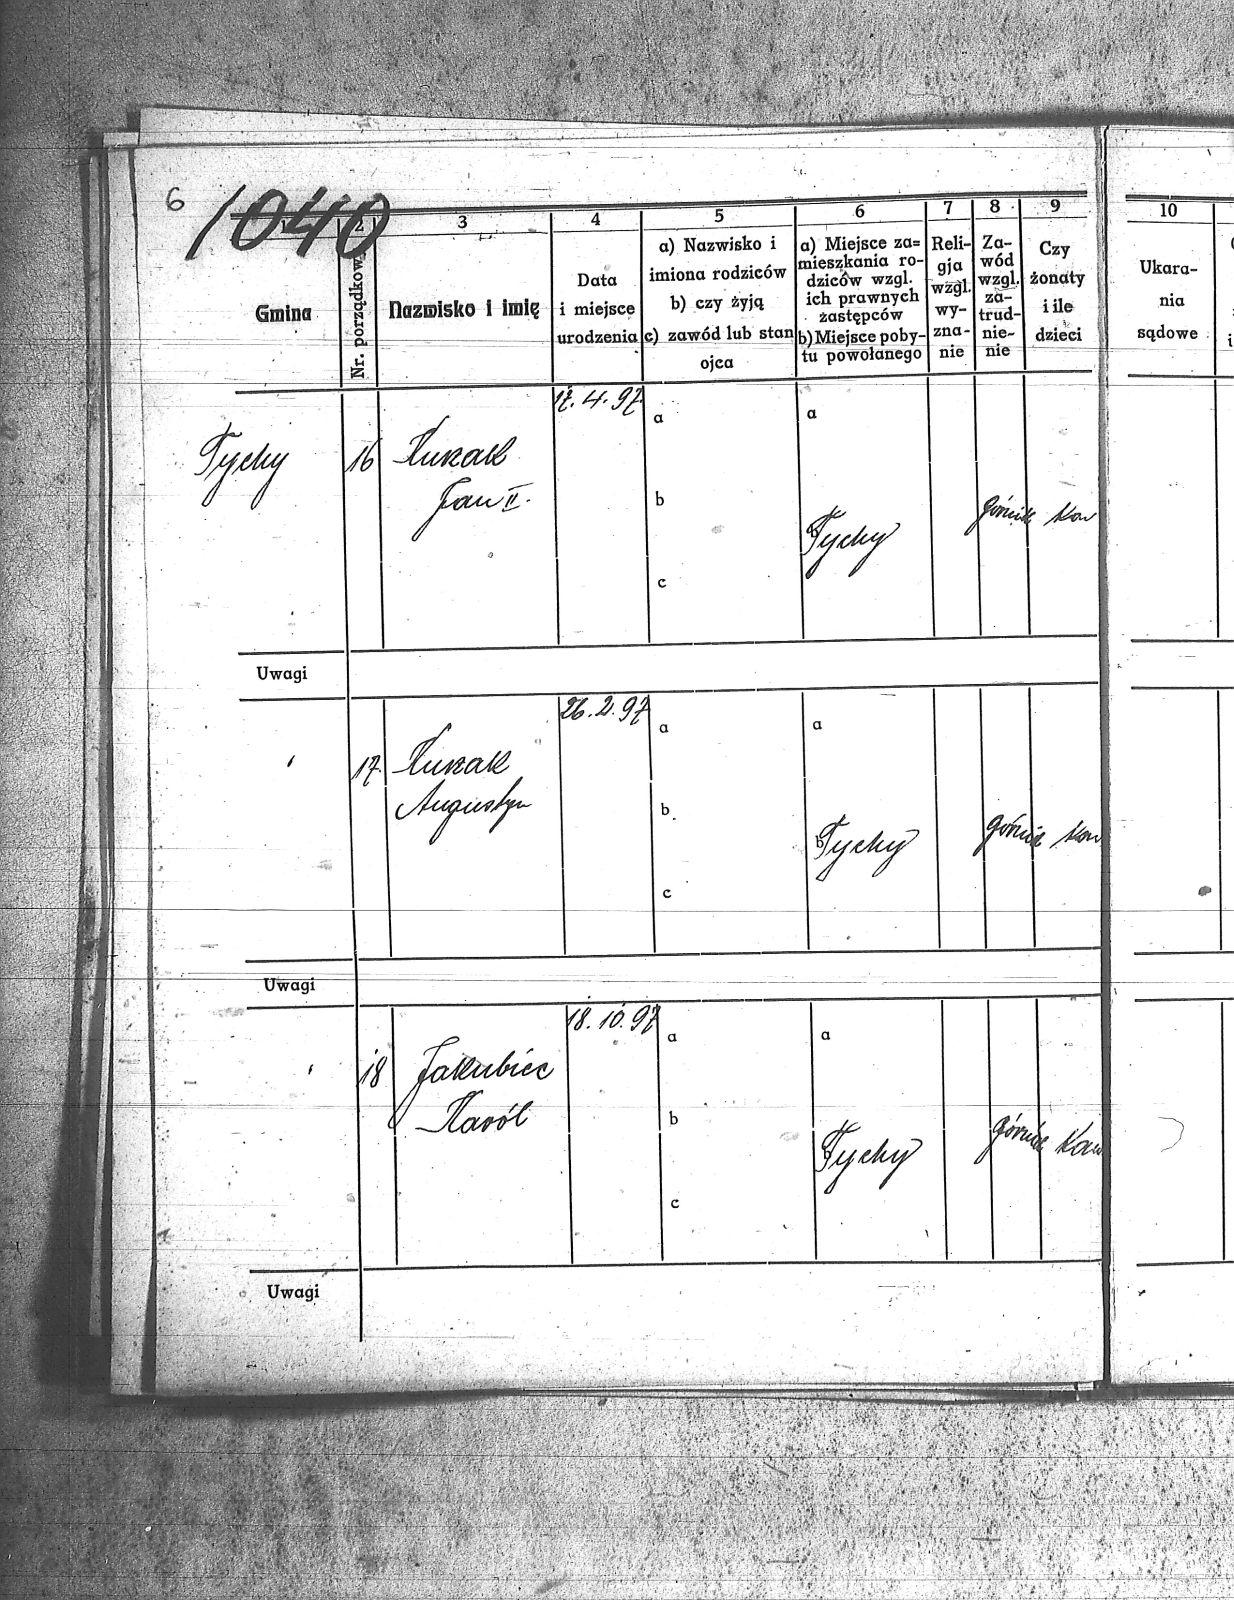 6
1040
2
3
4
5
6
7
8
9
10
Gmina
Nr. porządkowy
Nazwisko i imię
Data
i miejsce
urodzenia
a) Nazwisko i
imiona rodziców
b) czy żyją
c) zawód lub stan
ojca
a) Miejsce za=
mieszkania ro-
dziców wzgl.
ich prawnych
zastępców
b) Miejsce poby-
tu powołanego
Reli-
gja
wzgl.
wy-
zna-
nie
Za-
wód
wzgl.
za-
trud-
nie-
nie
Czy
żonaty
i ile
dzieci
Ukara-
nia
sądowe
Tychy
16
Jan II.
17.4.97
a
b
c
a
Tychy
górnik
Uwagi
17.
Augustyn
26.2.97
a
b
c
a
b
Tychy
górnik
Uwagi
18
Jakubiec
Karól
18.10.97
a
b
c
a
Tychy
górnik
Uwagi